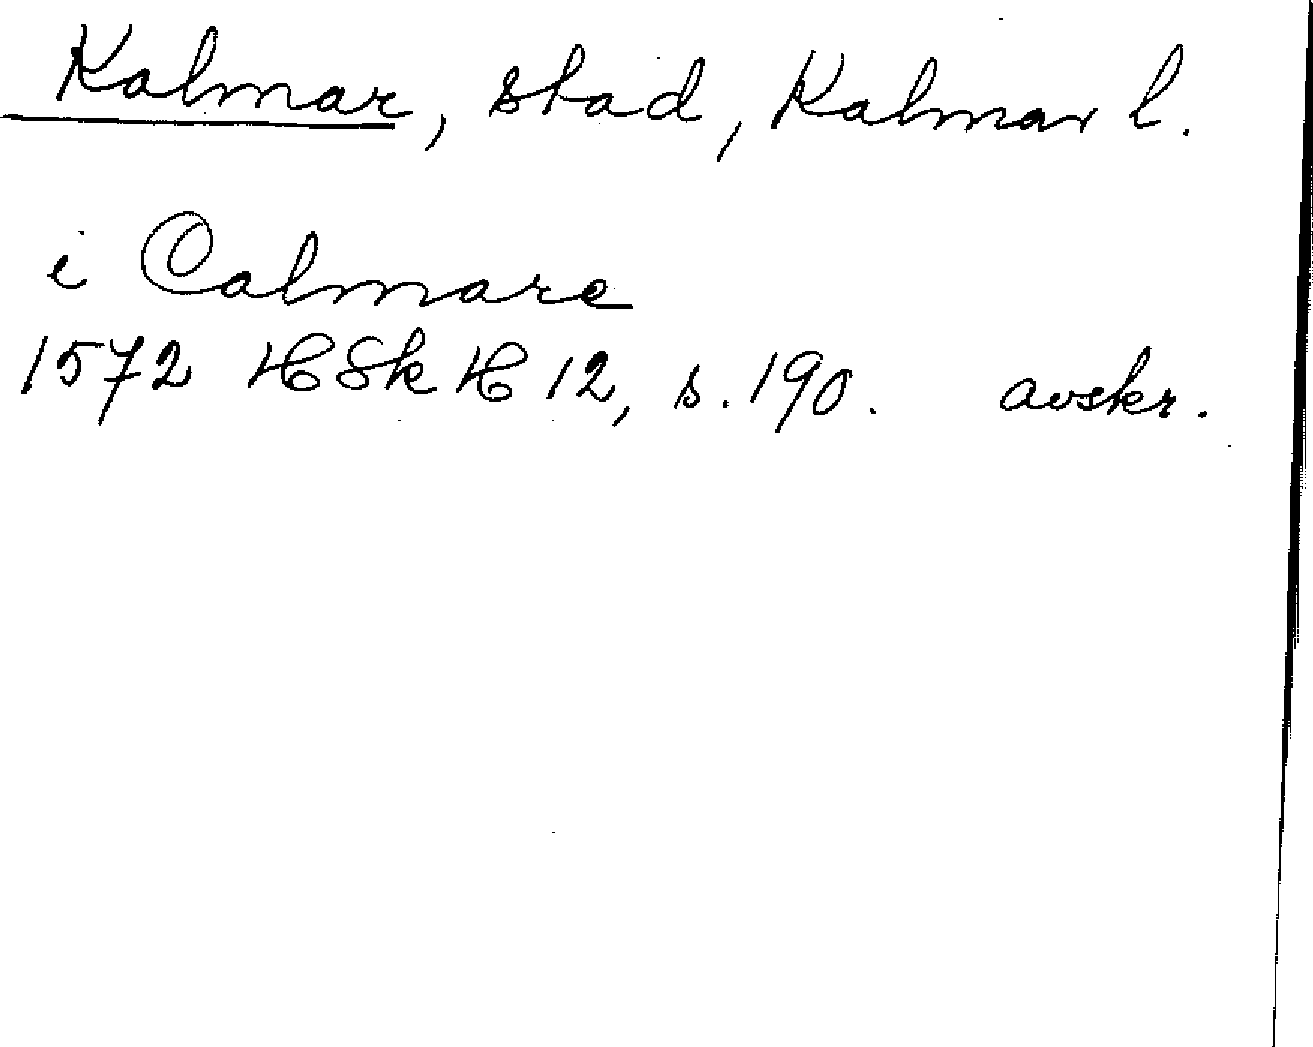 Kalmar, stad, Kalmar l.
i Calmare
1572 HSkH 12, s. 190. avskr.